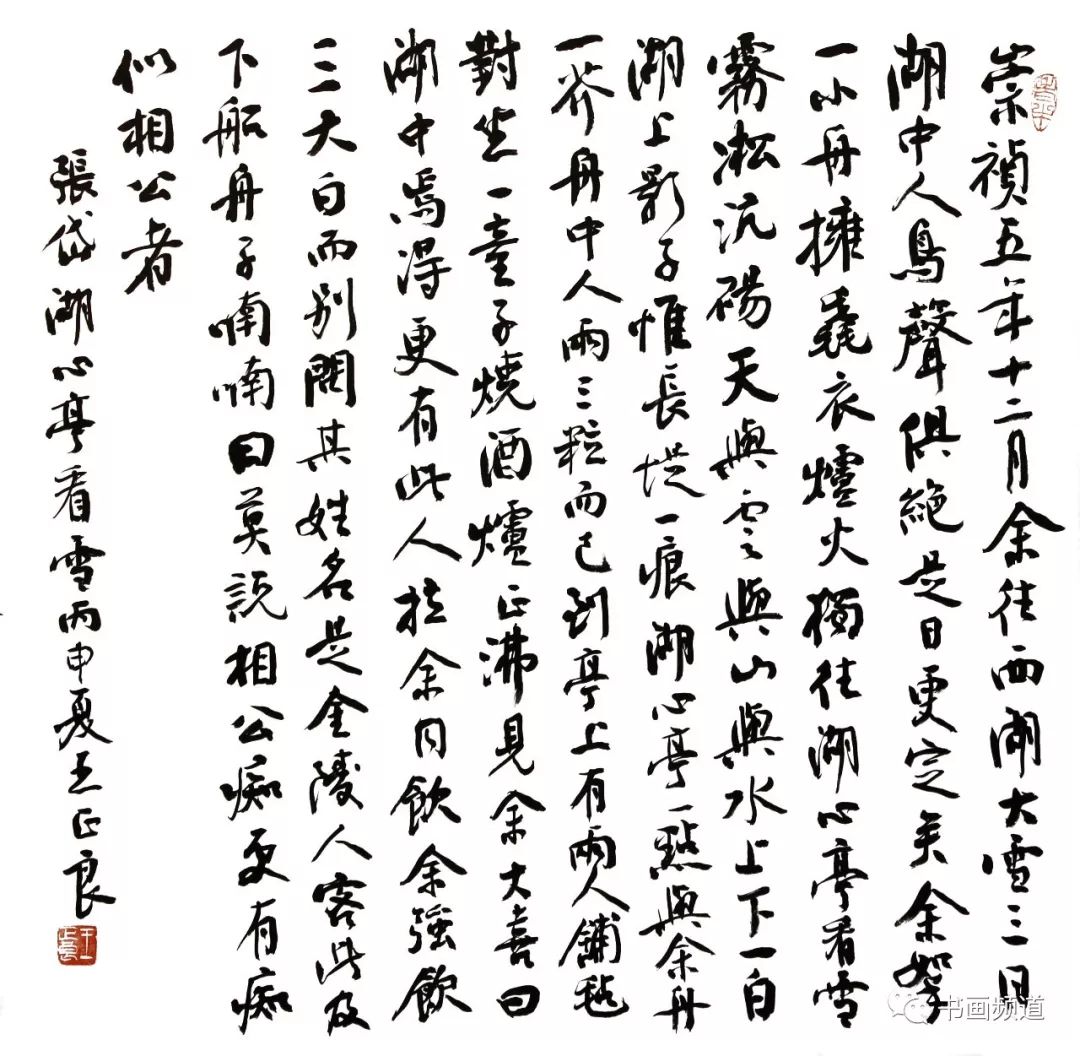 崇禎五年十二月余往西湖大雪三日
湖中人鳥聲俱絕是日更定矣余拏
一小舟擁毳衣爐火獨往湖心亭看雪
霧凇沆碭天與雲與山與水上下一白
湖上影子惟長堤一痕湖心亭一點與余舟
一芥舟中人兩三粒而已到亭上有兩人鋪氈
對坐一童子燒酒爐正沸見余大喜曰
湖中焉得更有此人拉余同飲余強飲
三大白而別問其姓名是金陵人客此及
下船舟子喃喃曰莫說相公痴更有痴
似相公者
張岱湖心亭看雪丙申夏王正良
书画频道